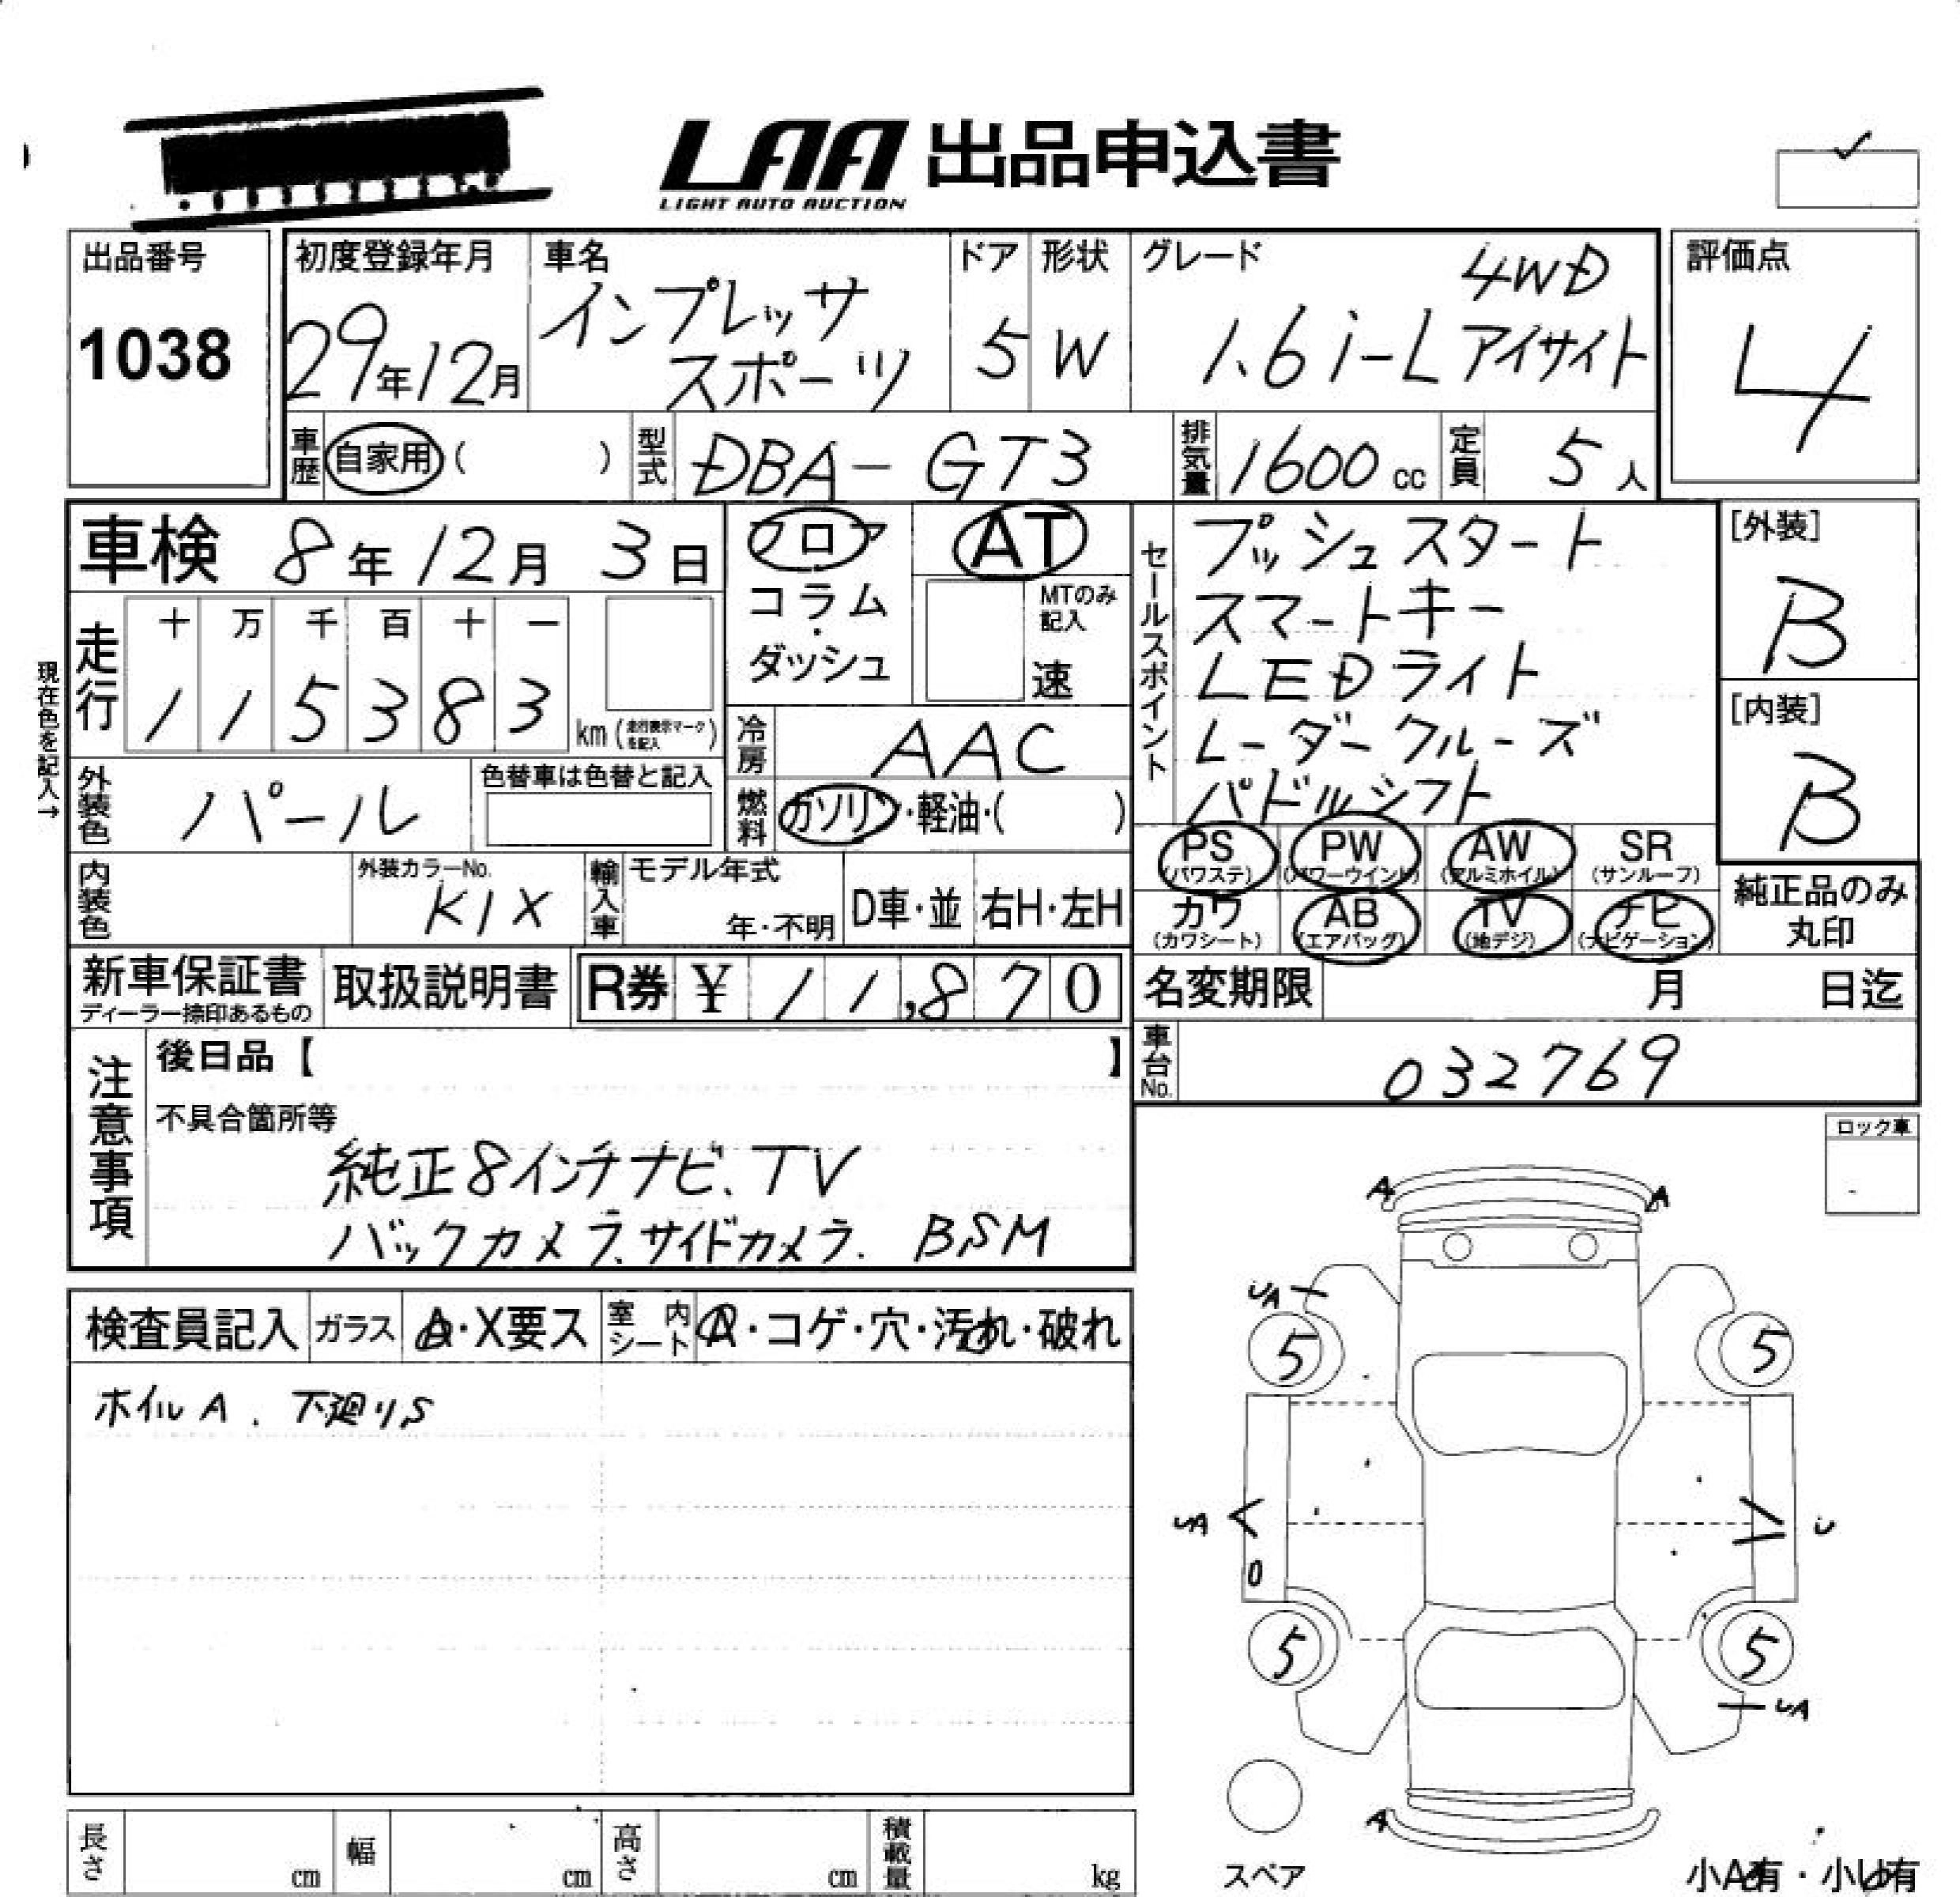 LAA 出品申込書
LIGHT AUTO AUCTION
出品番号
1038
初度登録年月
29年12月
車名
インプレッサ
スポーツ
ドア
5
形状
W
グレード
4WD
1.6 i-L アイサイト
評価点
4
車歴 自家用 ( )
型式 DBA-GT3
排気量 1600 cc
定員 5 人
車検 8年12月3日
フロア
コラム
・
ダッシュ
AT
MTのみ
記入
速
セールスポイント
プッシュスタート
スマートキー
LEDライト
レーダークルーズ
パドルシフト
[外装]
B
[内装]
B
現在色を記入→
走行
十 万 千 百 十 一
1 1 5 3 8 3
km (走行表示マークを記入)
冷房 AAC
燃料 ガソリン・軽油・( )
外装色 パール
色替車は色替と記入
内装色
外装カラーNo.
K1X
輸入車
モデル年式
年・不明
D車・並
右H・左H
PS (パワステ)
PW (パワーウインド)
AW (アルミホイル)
SR (サンルーフ)
カワ (カワシート)
AB (エアバッグ)
TV (地デジ)
ナビ (ナビゲーション)
純正品のみ
丸印
新車保証書
ディーラー捺印あるもの
取扱説明書
R券 ¥ 11,870
名変期限 月 日迄
車台No. 032769
注意事項
後日品【 】
不具合箇所等
純正8インチナビ、TV
バックカメラ、サイドカメラ. BSM
ロック車
検査員記入
ガラス A・X要ス
室内シート A・コゲ・穴・汚れ・破れ
ホイルA、下廻りS
A A
UA
5 5
UA U
0
5 5
UA
A
スペア
小A有・小U有
長さ cm
幅 cm
高さ cm
積載量 kg